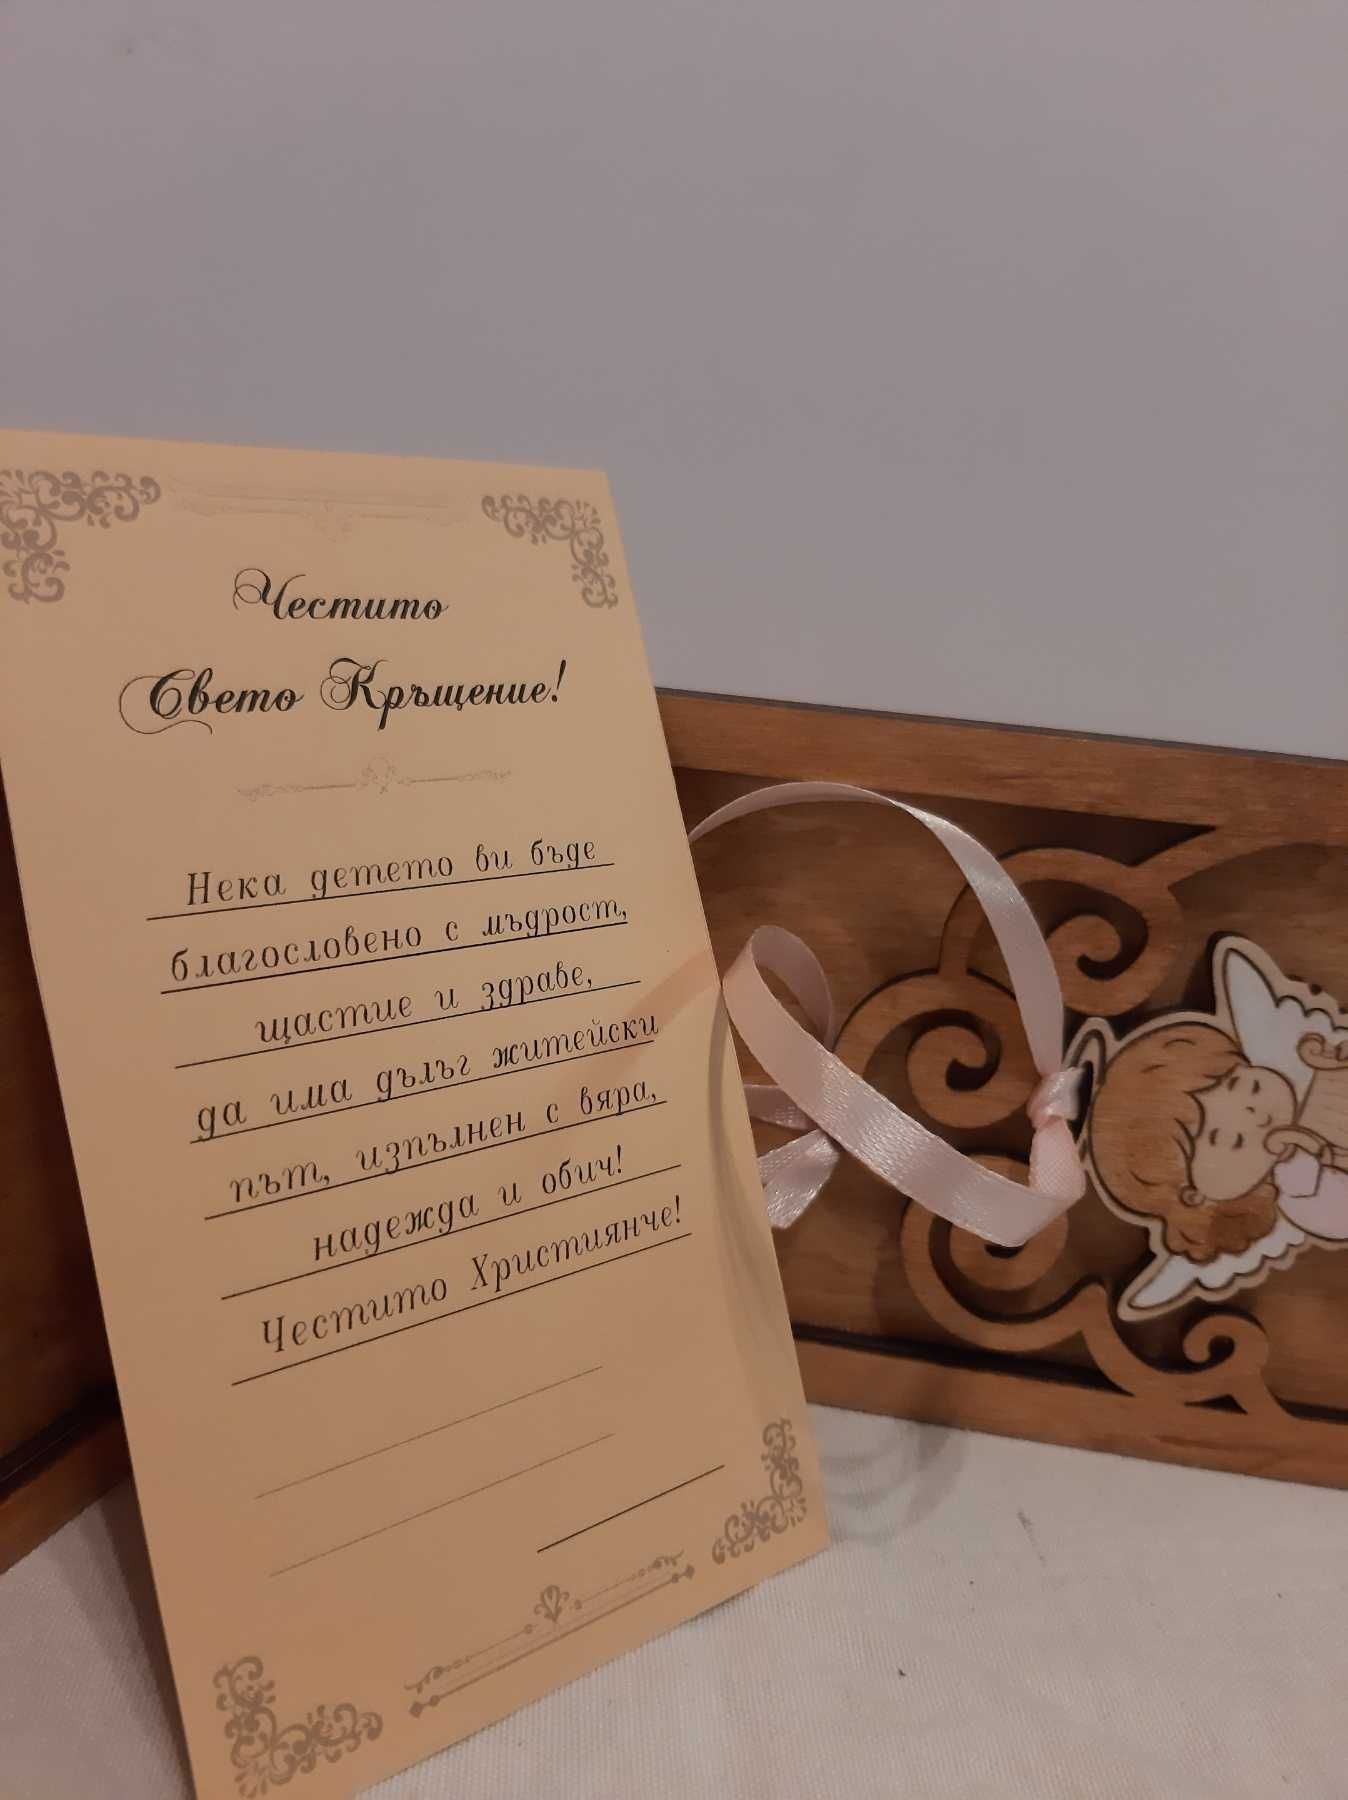 Честито
Свето Кръщение!
Нека детето ви бъде
благословено с мъдрост,
щастие и здраве,
да има дълъг житейски
път, изпълнен с вяра,
надежда и обич!
Честито Християнче!